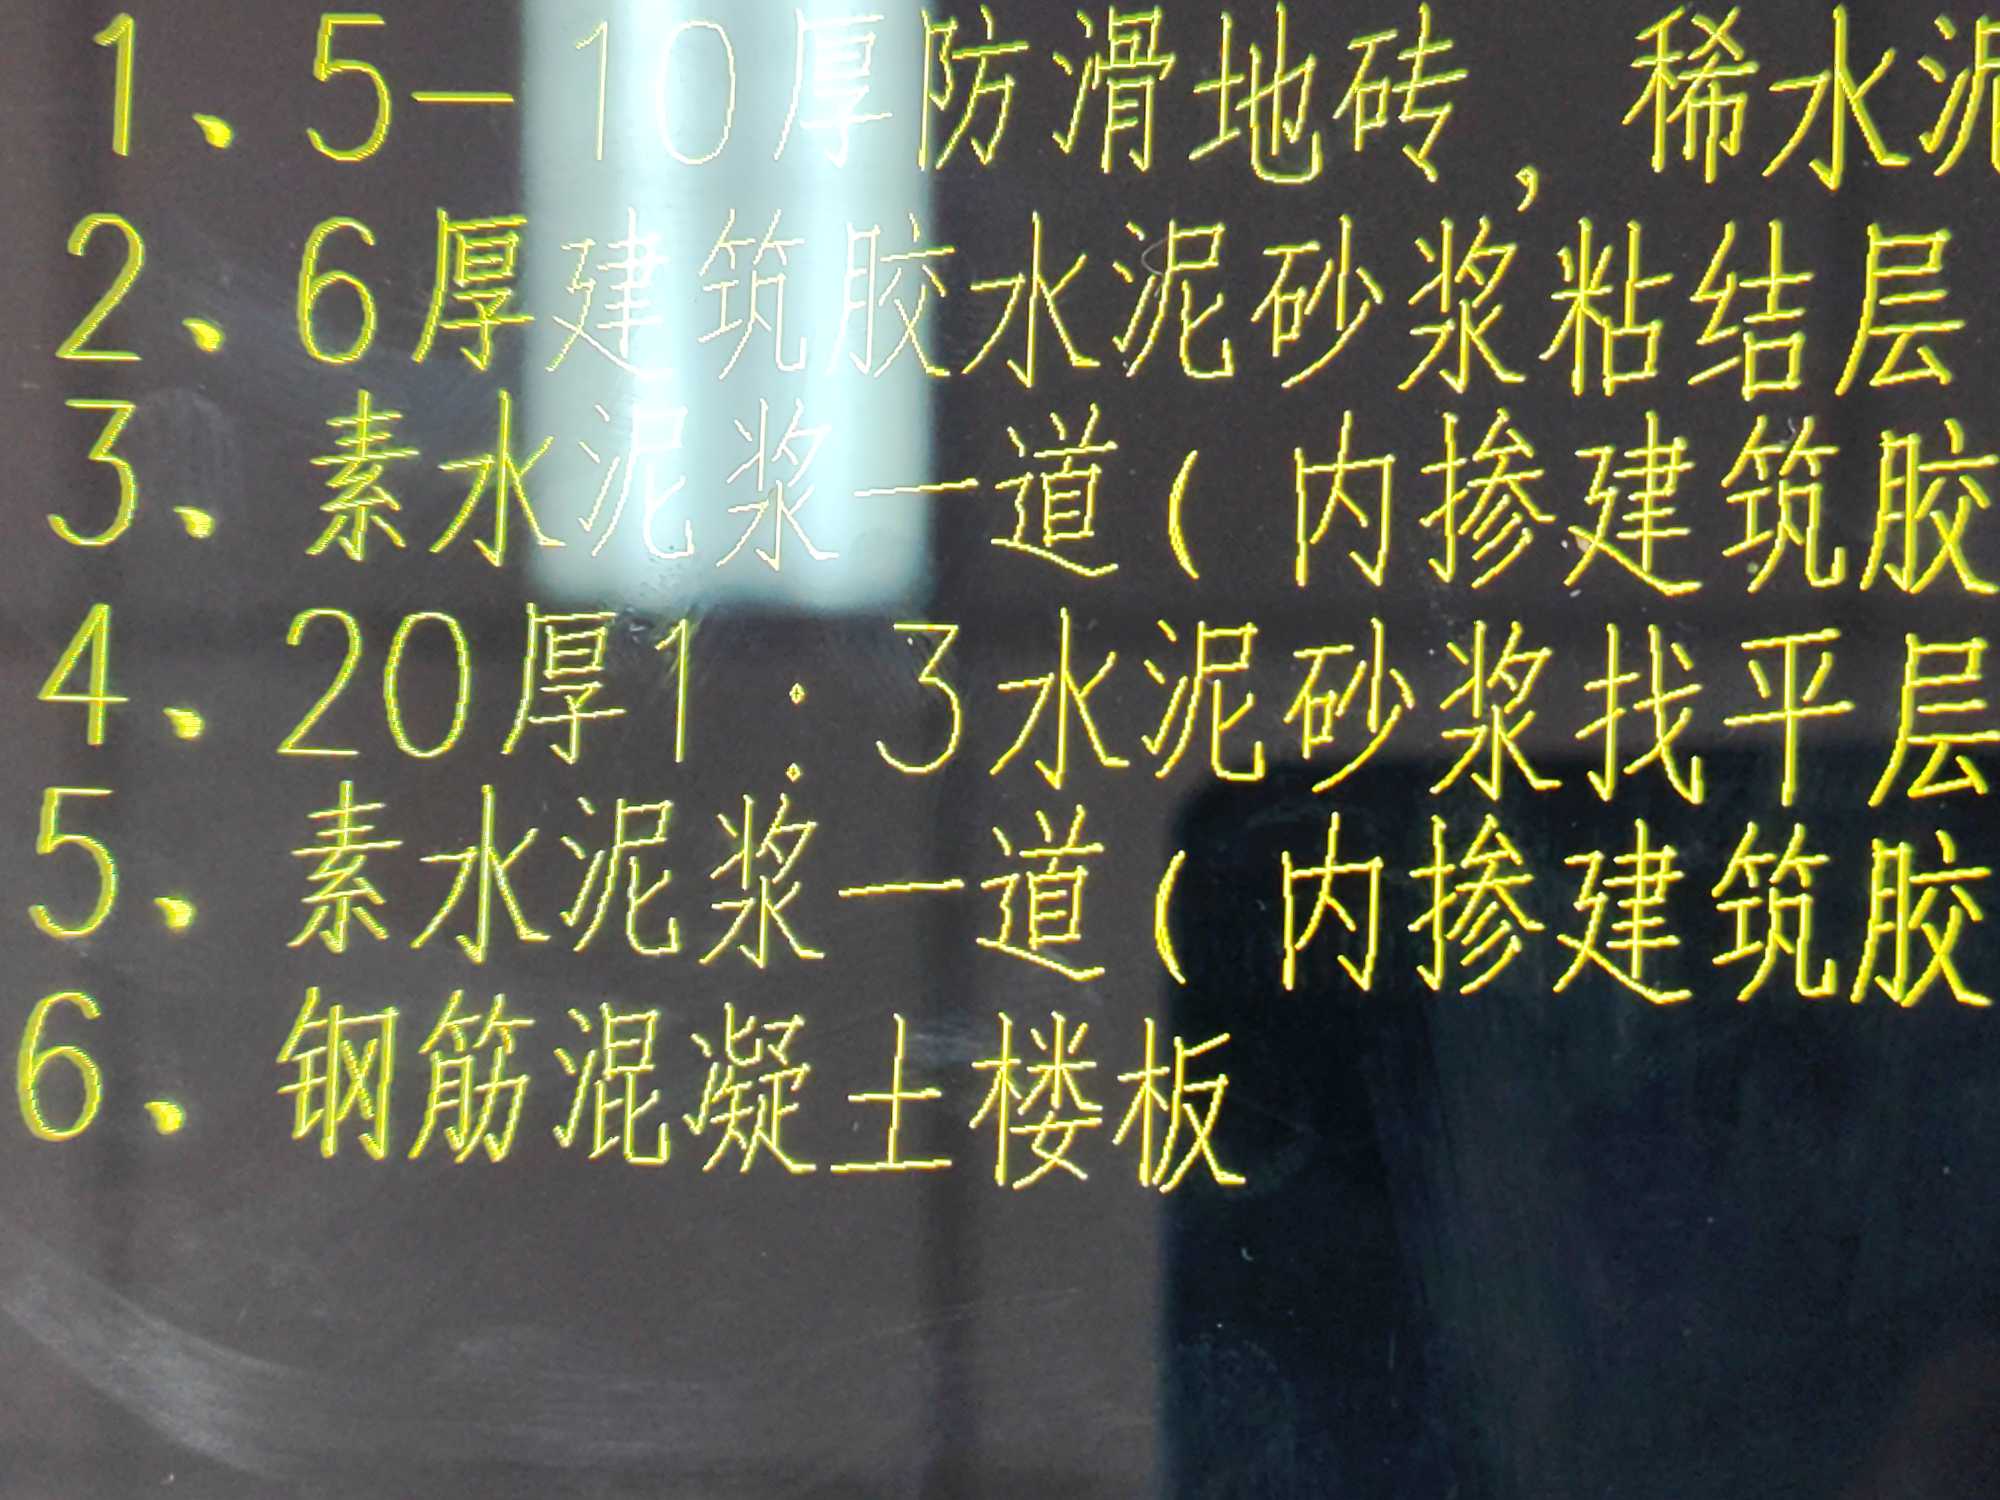 1、5—10厚防滑地砖，稀水泥
2、6厚建筑胶水泥砂浆粘结层
3、素水泥浆一道（内掺建筑胶
4、20厚1：3水泥砂浆找平层
5、素水泥浆一道（内掺建筑胶
6、钢筋混凝土楼板